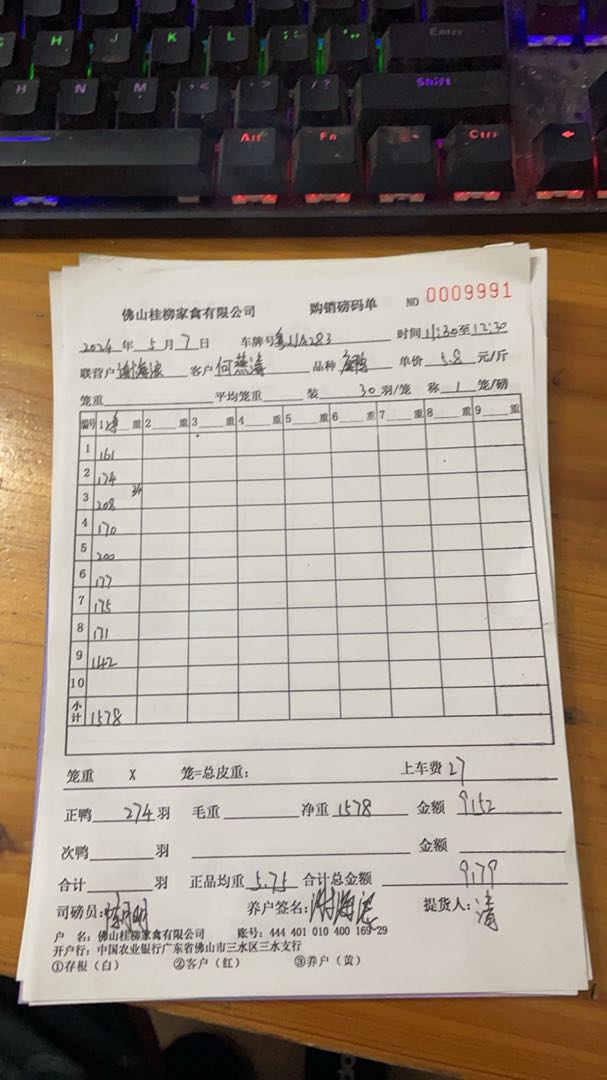 H J K L : ; " ' Enter
H N M < > / ? Shift
Alt Fn Ctrl
佛山桂柳家禽有限公司 购销磅码单 NO 0009991
2024 年 5 月 7 日 车牌号 时间 11:30至12:30
联营户 谢海滨 客户 何燕涛 品种 单价 5.8 元/斤
笼重 平均笼重 装 30 羽/笼 称 1 笼/磅
编号 1 净 重 2 重 3 重 4 重 5 重 6 重 7 重 8 重 9 重
1 161
2 174
3 208 34
4 170
5 200
6 177
7 175
8 171
9 142
10
小计 1578
笼重 X 笼=总皮重: 上车费 27
正鸭 274 羽 毛重 净重 1578 金额 9152
次鸭 羽 金额
合计 羽 正品均重 5.75 合计总金额 9179
司磅员: 养户签名: 谢海滨 提货人: 清
户 名: 佛山桂柳家禽有限公司 账号: 444 401 010 400 169 29
开户行: 中国农业银行广东省佛山市三水区三水支行
①存根(白) ②客户(红) ③养户(黄)